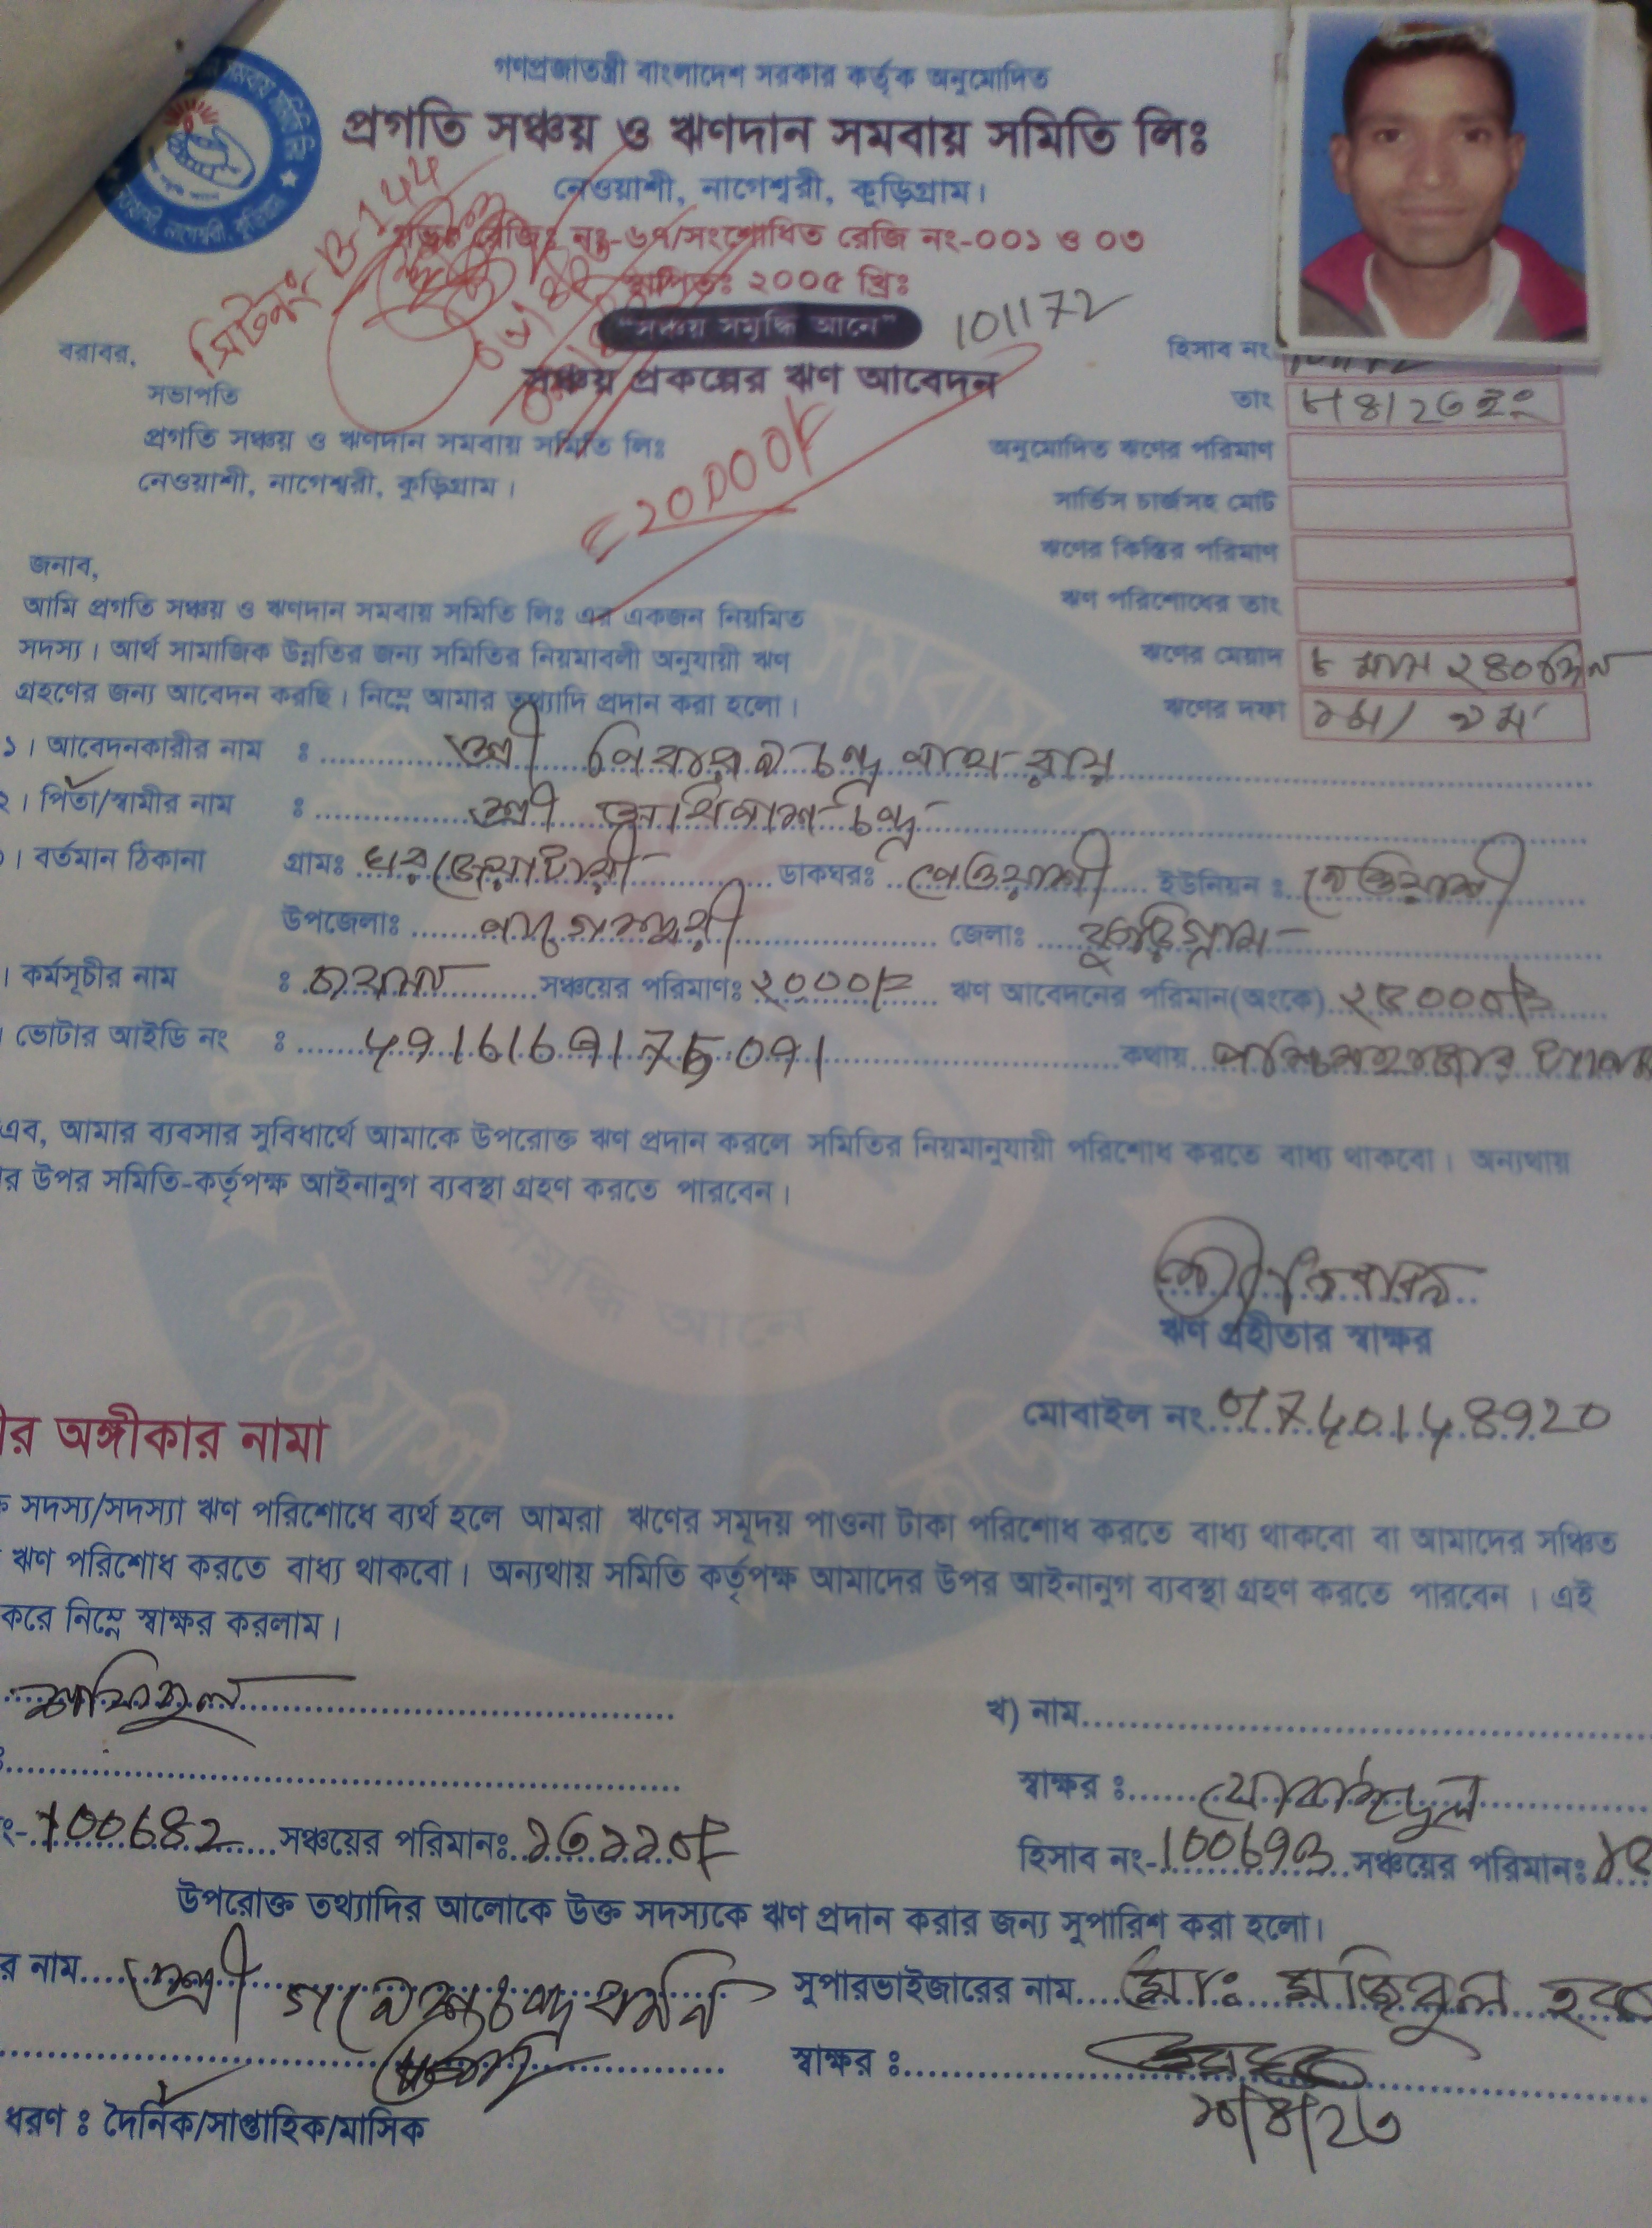 গণপ্রজাতন্ত্রী বাংলাদেশ সরকার কর্তৃক অনুমোদিত
প্রগতি সঞ্চয় ও ঋণদান সমবায় সমিতি লিঃ
নেওয়াশী, নাগেশ্বরী, কুড়িগ্রাম।
রেজিঃ নং-৬৭/সংশোধিত রেজি নং-০০১ ও ০৩
স্থাপিতঃ ২০০৫ খ্রিঃ
"সঞ্চয় সমৃদ্ধি আনে"
101172
সঞ্চয় প্রকল্পের ঋণ আবেদন
20000/-
বরাবর,
সভাপতি
প্রগতি সঞ্চয় ও ঋণদান সমবায় সমিতি লিঃ
নেওয়াশী, নাগেশ্বরী, কুড়িগ্রাম।
হিসাব নং
তাং
অনুমোদিত ঋণের পরিমাণ
সার্ভিস চার্জসহ মোট
ঋণের কিস্তির পরিমাণ
ঋণ পরিশোধের তাং
ঋণের মেয়াদ ৮ মাস ২৪০ দিন
ঋণের দফা
জনাব,
আমি প্রগতি সঞ্চয় ও ঋণদান সমবায় সমিতি লিঃ এর একজন নিয়মিত
সদস্য। আর্থ সামাজিক উন্নতির জন্য সমিতির নিয়মাবলী অনুযায়ী ঋণ
গ্রহণের জন্য আবেদন করছি। নিম্নে আমার তথ্যাদি প্রদান করা হলো।
১। আবেদনকারীর নাম ঃ শ্রী নিবারন চন্দ্র নাথ রায়
২। পিতা/স্বামীর নাম ঃ শ্রী চন্দ্র
। বর্তমান ঠিকানা গ্রামঃ ডাকঘরঃ নেওয়াশী ইউনিয়ন ঃ নেওয়াশী
উপজেলাঃ নাগেশ্বরী জেলাঃ কুড়িগ্রাম
। কর্মসূচীর নাম ঃ সঞ্চয়ের পরিমাণঃ ২০০০/= ঋণ আবেদনের পরিমান(অংকে) ২৫০০০/=
। ভোটার আইডি নং ঃ কথায়
এব, আমার ব্যবসার সুবিধার্থে আমাকে উপরোক্ত ঋণ প্রদান করলে সমিতির নিয়মানুযায়ী পরিশোধ করতে বাধ্য থাকবো। অন্যথায়
র উপর সমিতি-কর্তৃপক্ষ আইনানুগ ব্যবস্থা গ্রহণ করতে পারবেন।
শ্রী নিবারন
ঋণ গ্রহীতার স্বাক্ষর
মোবাইল নং 01740148920
র অঙ্গীকার নামা
ক সদস্য/সদস্যা ঋণ পরিশোধে ব্যর্থ হলে আমরা ঋণের সমূদয় পাওনা টাকা পরিশোধ করতে বাধ্য থাকবো বা আমাদের সঞ্চিত
ঋণ পরিশোধ করতে বাধ্য থাকবো। অন্যথায় সমিতি কর্তৃপক্ষ আমাদের উপর আইনানুগ ব্যবস্থা গ্রহণ করতে পারবেন। এই
করে নিম্নে স্বাক্ষর করলাম।
খ) নাম
স্বাক্ষর ঃ
ং-100682 সঞ্চয়ের পরিমানঃ
হিসাব নং- সঞ্চয়ের পরিমানঃ
উপরোক্ত তথ্যাদির আলোকে উক্ত সদস্যকে ঋণ প্রদান করার জন্য সুপারিশ করা হলো।
র নাম শ্রী গনেশ চন্দ্র বর্মন সুপারভাইজারের নাম মোঃ মজিবুল হক
স্বাক্ষর ঃ
ধরণ ঃ দৈনিক/সাপ্তাহিক/মাসিক